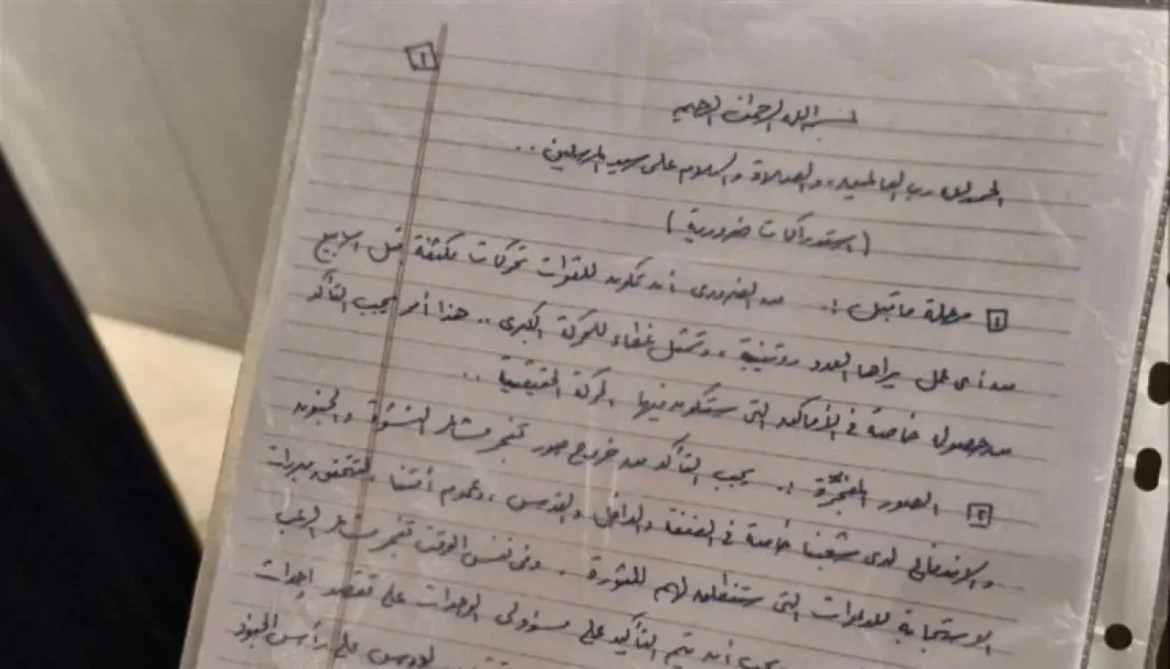 ١
بسم الله الرحمن الرحيم
الحمد لله رب العالمين، والصلاة والسلام على سيد المرسلين ..
(استدراكات ضرورية)
١ مرحلة ما قبل :. من الضروري أن تكون للقوات تحركات مكثفة قبل الأسابيع
من أي عمل يراها العدو روتينية، وتشكل غطاء للحركة الكبرى .. هذا أمر يجب التأكد
من حصوله خاصة في الأماكن التي ستكون فيها الحركة الحقيقية ..
٢ الصور المفجرة :. يجب التأكد من خروج صور تفجر مشاعر النشوة والجنون
والاندفاع لدى شعبنا خاصة في الضفة والداخل والقدس، وعموم أمتنا لتتحقق مبررات
الاستجابة للدعوات التي ستنطلق لهم للثورة . وفي نفس الوقت تفجر مشاعر الرعب
يجب أن يتم التأكيد على مسؤولي الوحدات على تقصد إحداث
على رأس الجنود